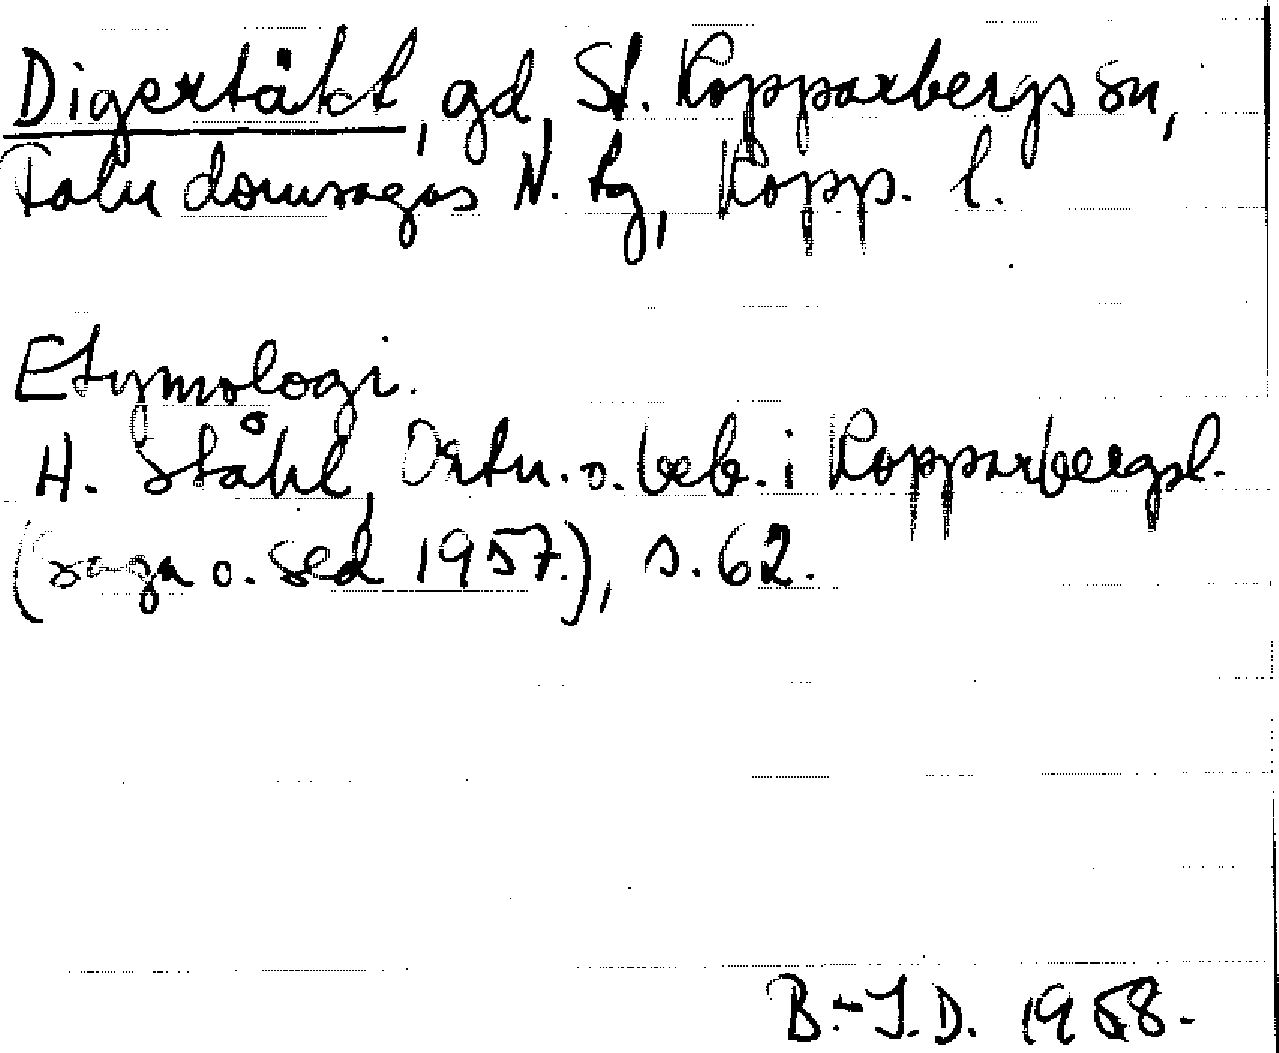 Digertäkt, gd, St. Kopparbergs sn,
Falu domsagas N. tg, Kopp. l.
Etymologi.
H. Ståhl, Ortn. o. beb. i Kopparbergsl.
(saga o. sed 1957.), s. 62.
B.-I.D. 1958.